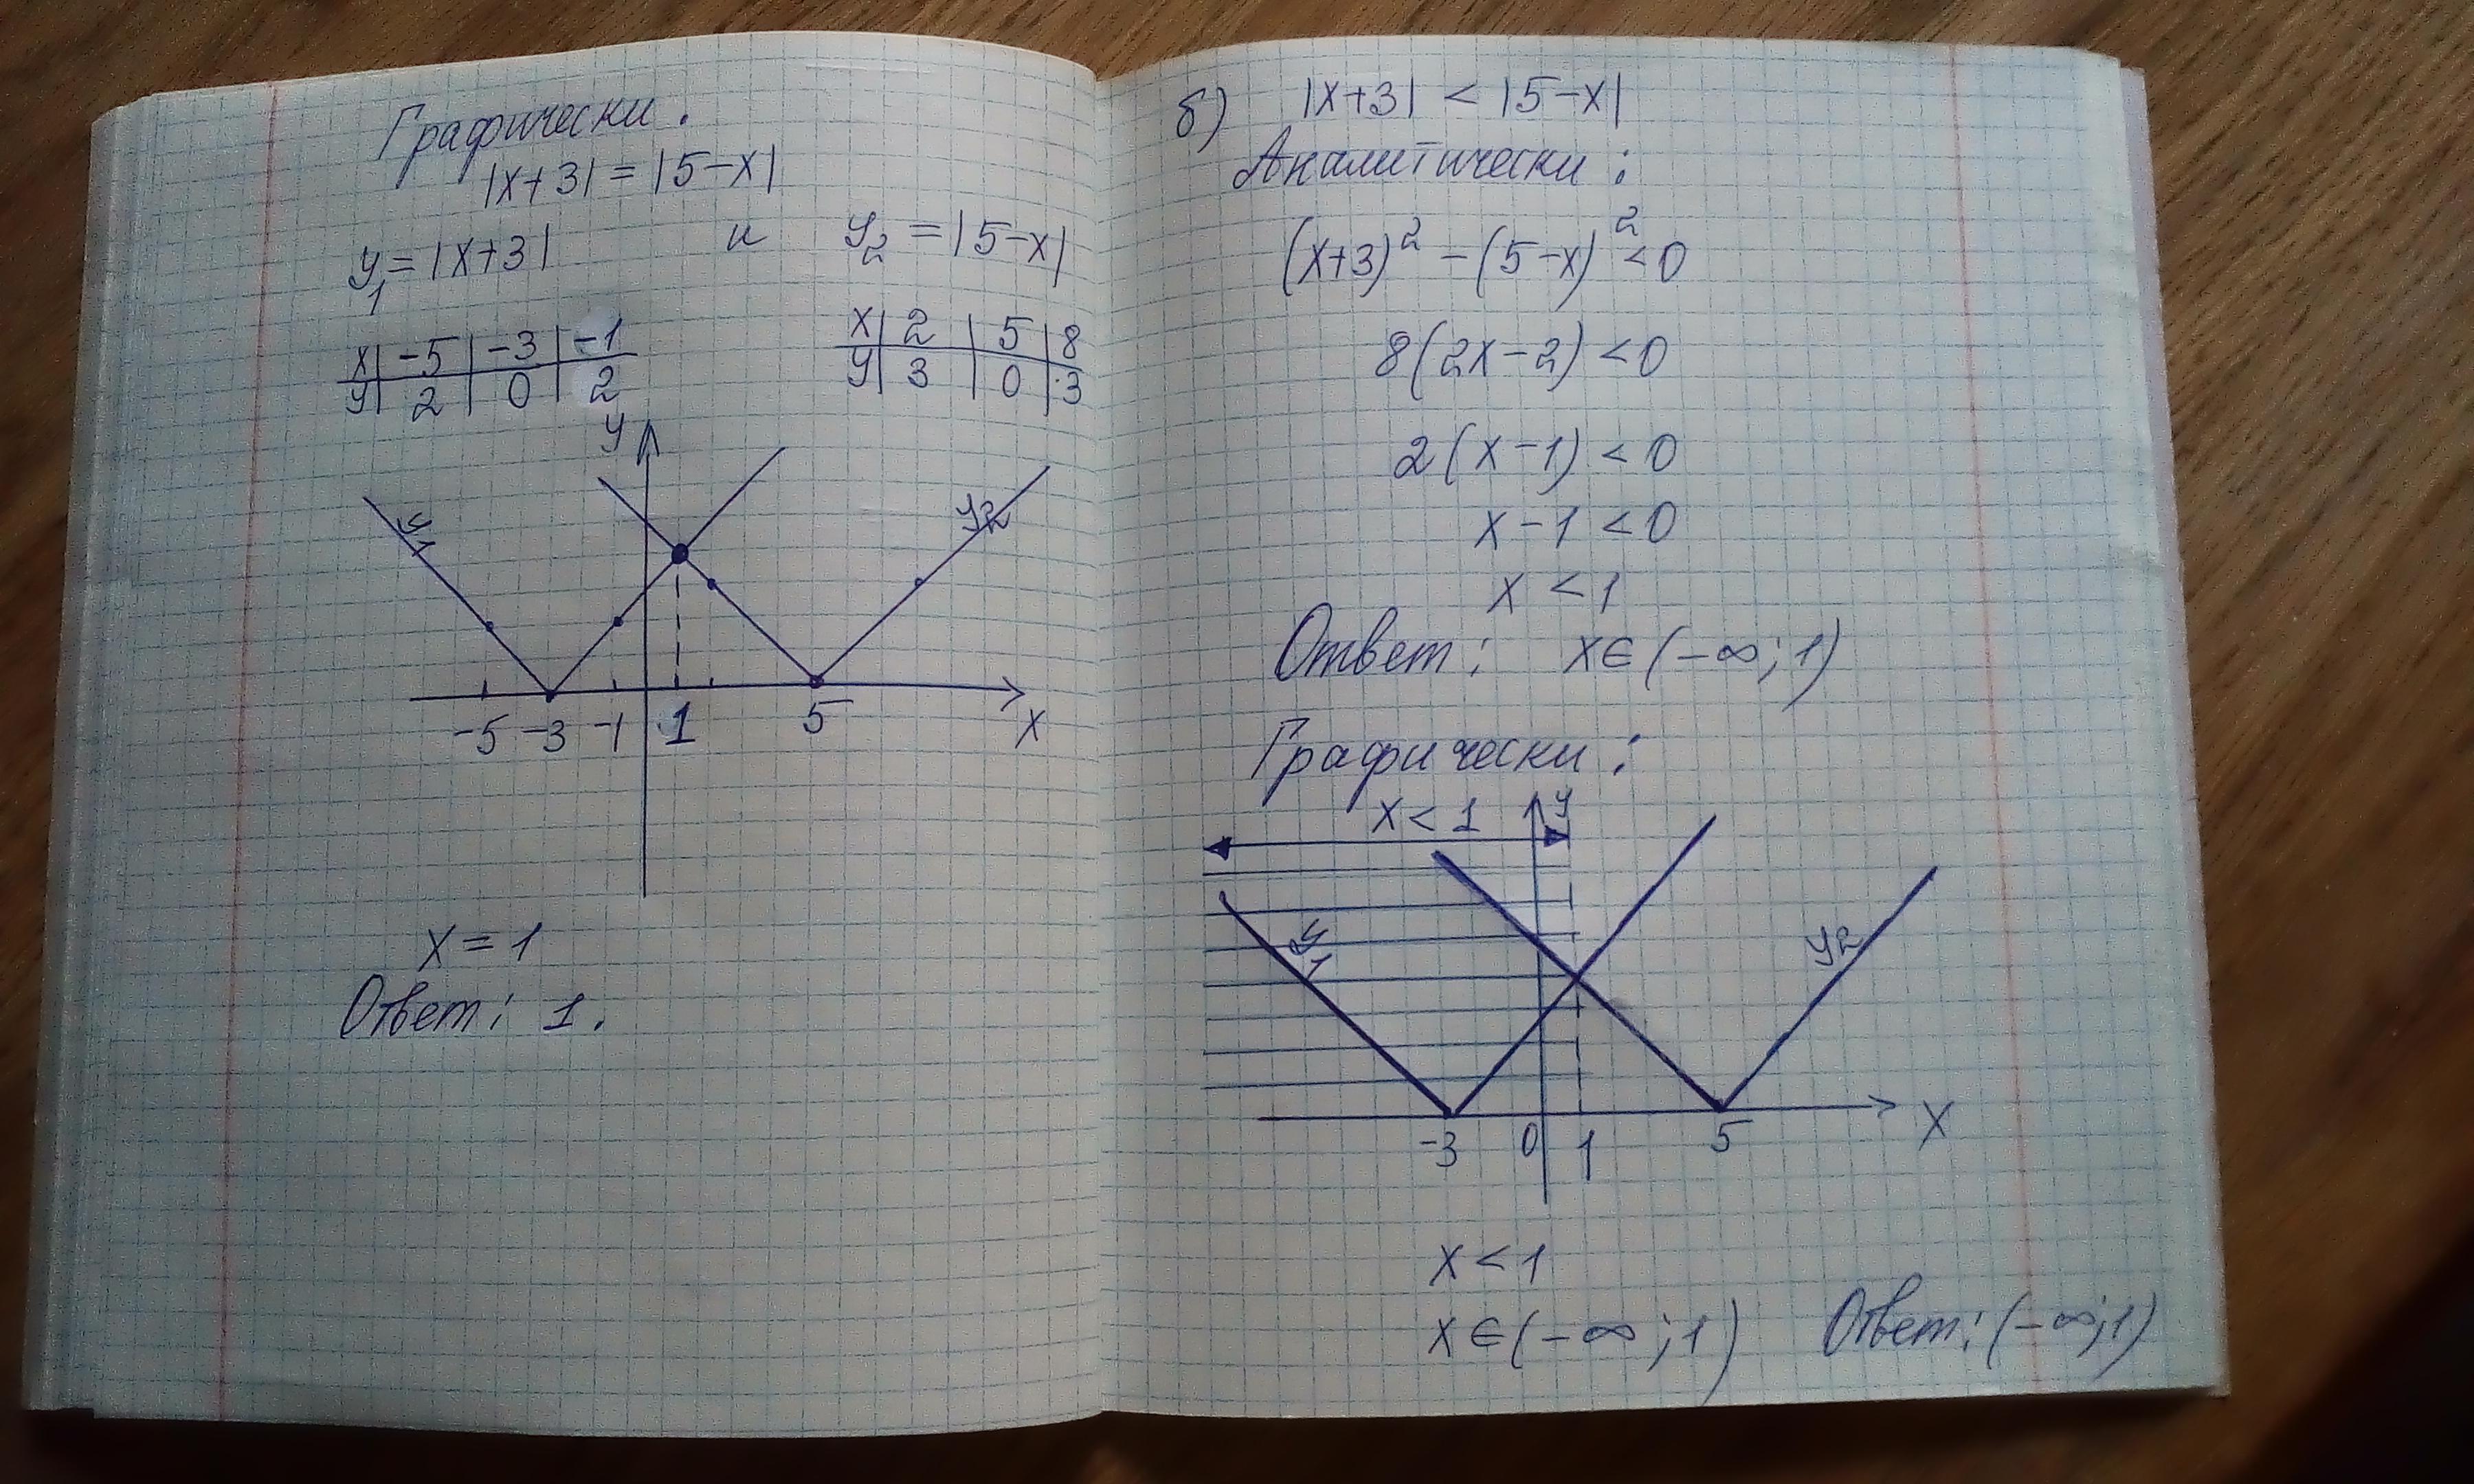 Графически.
|x+3| = |5-x|
y₁ = |x+3| и y₂ = |5-x|
x | -5 | -3 | -1
y | 2 | 0 | 2
x | 2 | 5 | 8
y | 3 | 0 | 3
y
y₁
y₂
-5 -3 -1 1 5 x
x = 1
Ответ: 1.
б) |x+3| < |5-x|
Аналитически:
(x+3)² - (5-x)² < 0
8(2x-2) < 0
2(x-1) < 0
x-1 < 0
x < 1
Ответ: x∈(-∞;1)
Графически:
x < 1 y
y₁ y₂
-3 0 1 5 x
x < 1
x∈(-∞;1) Ответ: (-∞;1)